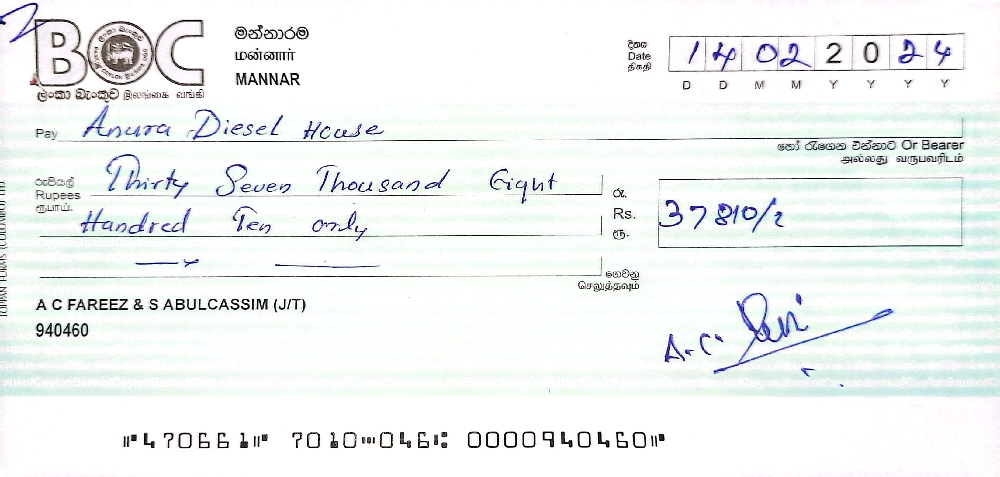 BOC
ලංකා බැංකුව இலங்கை வங்கி
මන්නාරම
மன்னார்
MANNAR
දිනය
Date
திகதி
14 02 2024
D D M M Y Y Y Y
Pay Anura Diesel House
හෝ රැගෙන එන්නාට Or Bearer
அல்லது வருபவரிடம்
රුපියල්
Rupees
ரூபாய்.
Thirty Seven Thousand Eight
Hundred Ten only
රු.
Rs.
ரூ.
37810/=
ගෙවනු
செலுத்தவும்
A C FAREEZ & S ABULCASSIM (J/T)
940460
A.C.
BankofCeylonBankofCeylon
⑈470661⑈ 7010⑉046⑆ 0000940460⑈